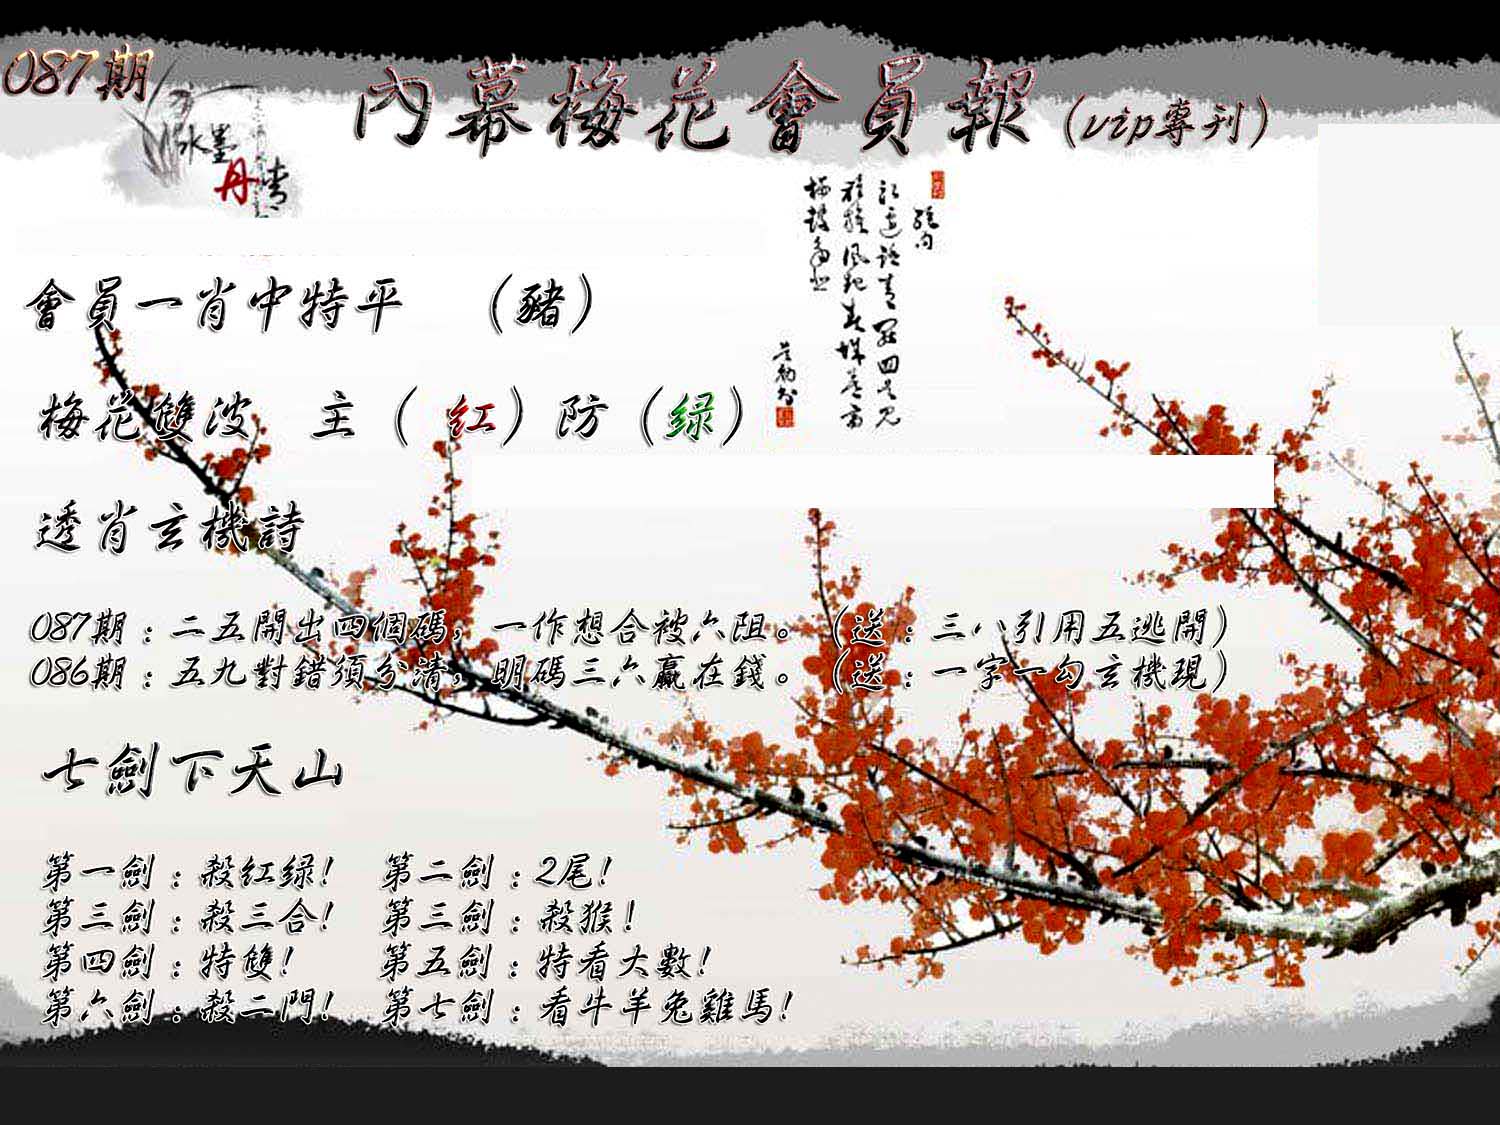 087期
內幕梅花會員報(vip專刊)
水墨
丹青
絕句
會員一肖中特平 (豬)
梅花雙波 主(紅)防(绿)
透肖玄機詩
087期:二五開出四個碼,一作想合被六阻。(送:三八引用五逃開)
086期:五九對錯須分清,明碼三六贏在錢。(送:一字一勾玄機現)
七劍下天山
第一劍:殺紅绿! 第二劍:2尾!
第三劍:殺三合! 第三劍:殺猴!
第四劍:特雙! 第五劍:特看大數!
第六劍:殺二門! 第七劍:看牛羊兔雞馬!